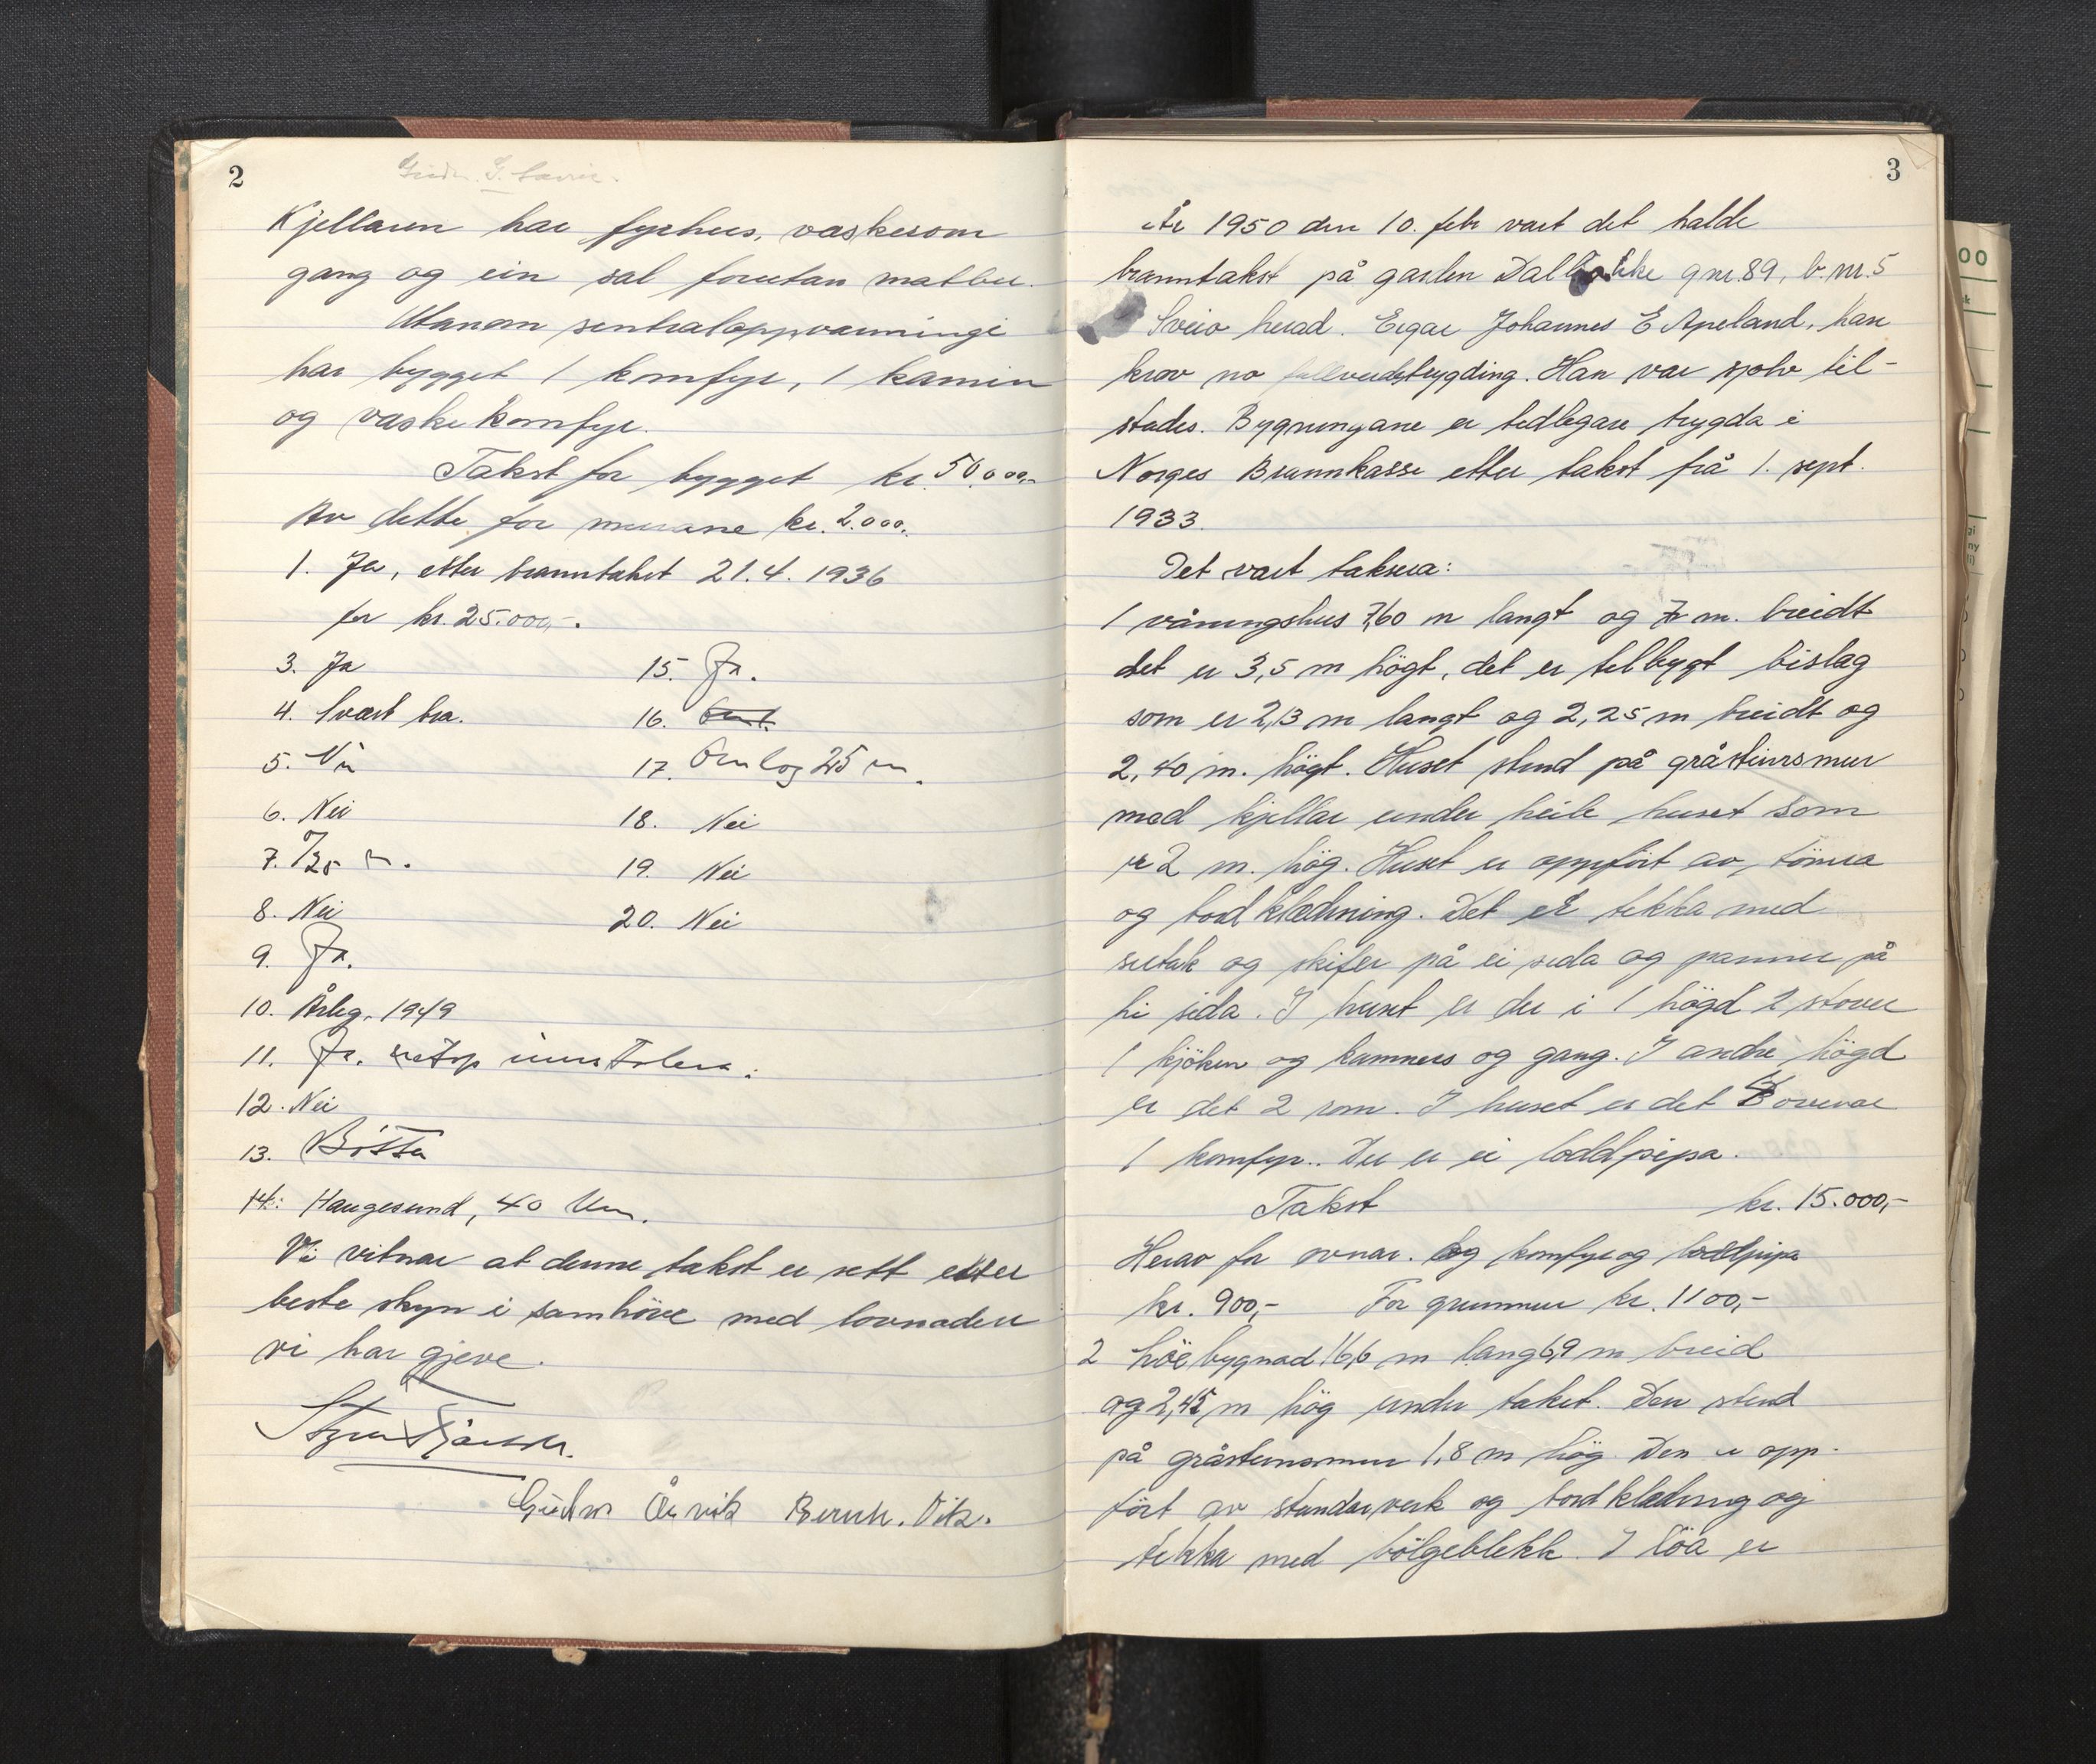 2
Kjellaren har fyrhus, vaskerom
gang og ein sal forutan matbu.
Utanom sentraloppvarmingi
har bygget 1 komfyr, 1 kamin
og vaskekomfyr.
Takst for bygget kr. 50.000,-
Av dette for murane kr. 2.000.-
1. Ja, etter branntakst 21.4.1936
for kr. 25.000,-.
3. Ja
4. Svært bra.
5.
6. Nei
7. m.
8. Nei
9. Ja.
10. Årleg. 1949
11. Ja.
12. Nei
13. Bøtter
14. Haugesund, 40 km.
15. Ja.
16.
17. Omlag 25 m.
18. Nei
19. Nei
20. Nei
Vi vitnar at denne takst er sett etter
beste skyn i samhöve med lovnaden
vi har gjeve.
Gudm Årvik Bernh. Vik.
3
År 1950 den 10. febr vart det halde
branntakst på garden gnr. 89, b.nr. 5
Sveio herad. Eigar Johannes E Apeland, han
krov no fullverdstrygding. Han var sjølv til-
stades. Bygnungane er tidlegare trygda i
Norges Brannkasse etter takst frå 1. sept.
1933.
Det vart taksera:
1 våningshus 7,60 m langt og 7 m. breidt
det er 3,5 m högt, det er tilbygt bislag
som er 2,13 m langt og 2,25 m breidt og
2,40 m. högt. Huset stend på gråsteinsmur
med kjellar under heile huset som
er 2 m. hög. Huset er oppfört av tömra
og bordklædning. Det er tekka med
sutak og skifer på ei sida og panner på
hi sida. I huset er der i 1 högd 2 stover
1 kjöken og kammers og gang. I andre högd
er det 2 rom. I huset er det ovnar
1 komfyr.. Der er ei loddpipa.
Takst kr. 15.000,-
Herav for ovnar. og komfyr og loddpipa
kr. 900,- For grunnmur kr. 1100,-
2 höebygnad 16,6 m lang 6,9 m breid
og 2,45 m hög under taket. Den stend
på gråsteinsmur 1,8 m hög Den er opp-
fört av standarverk og bordklædning og
tekka med bölgeblekk. I löa er